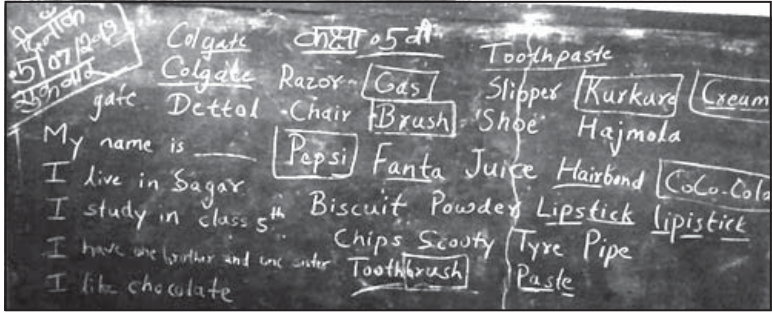 दिनाँक
5/07/2019
शुक्रवार
Colgate कक्षा 05 वी Toothpaste
Colgate Razor Gas Slipper Kurkure Cream
gate Dettol Chair Brush Shoe Hajmola
My name is ____ Pepsi Fanta Juice Hairbond CoCo-Cola
I live in Sagar
I study in class 5th Biscuit Powder Lipstick lipistick
I have one brother and one sister Chips Scouty Tyre Pipe
I like chocolate Toothbrush Paste